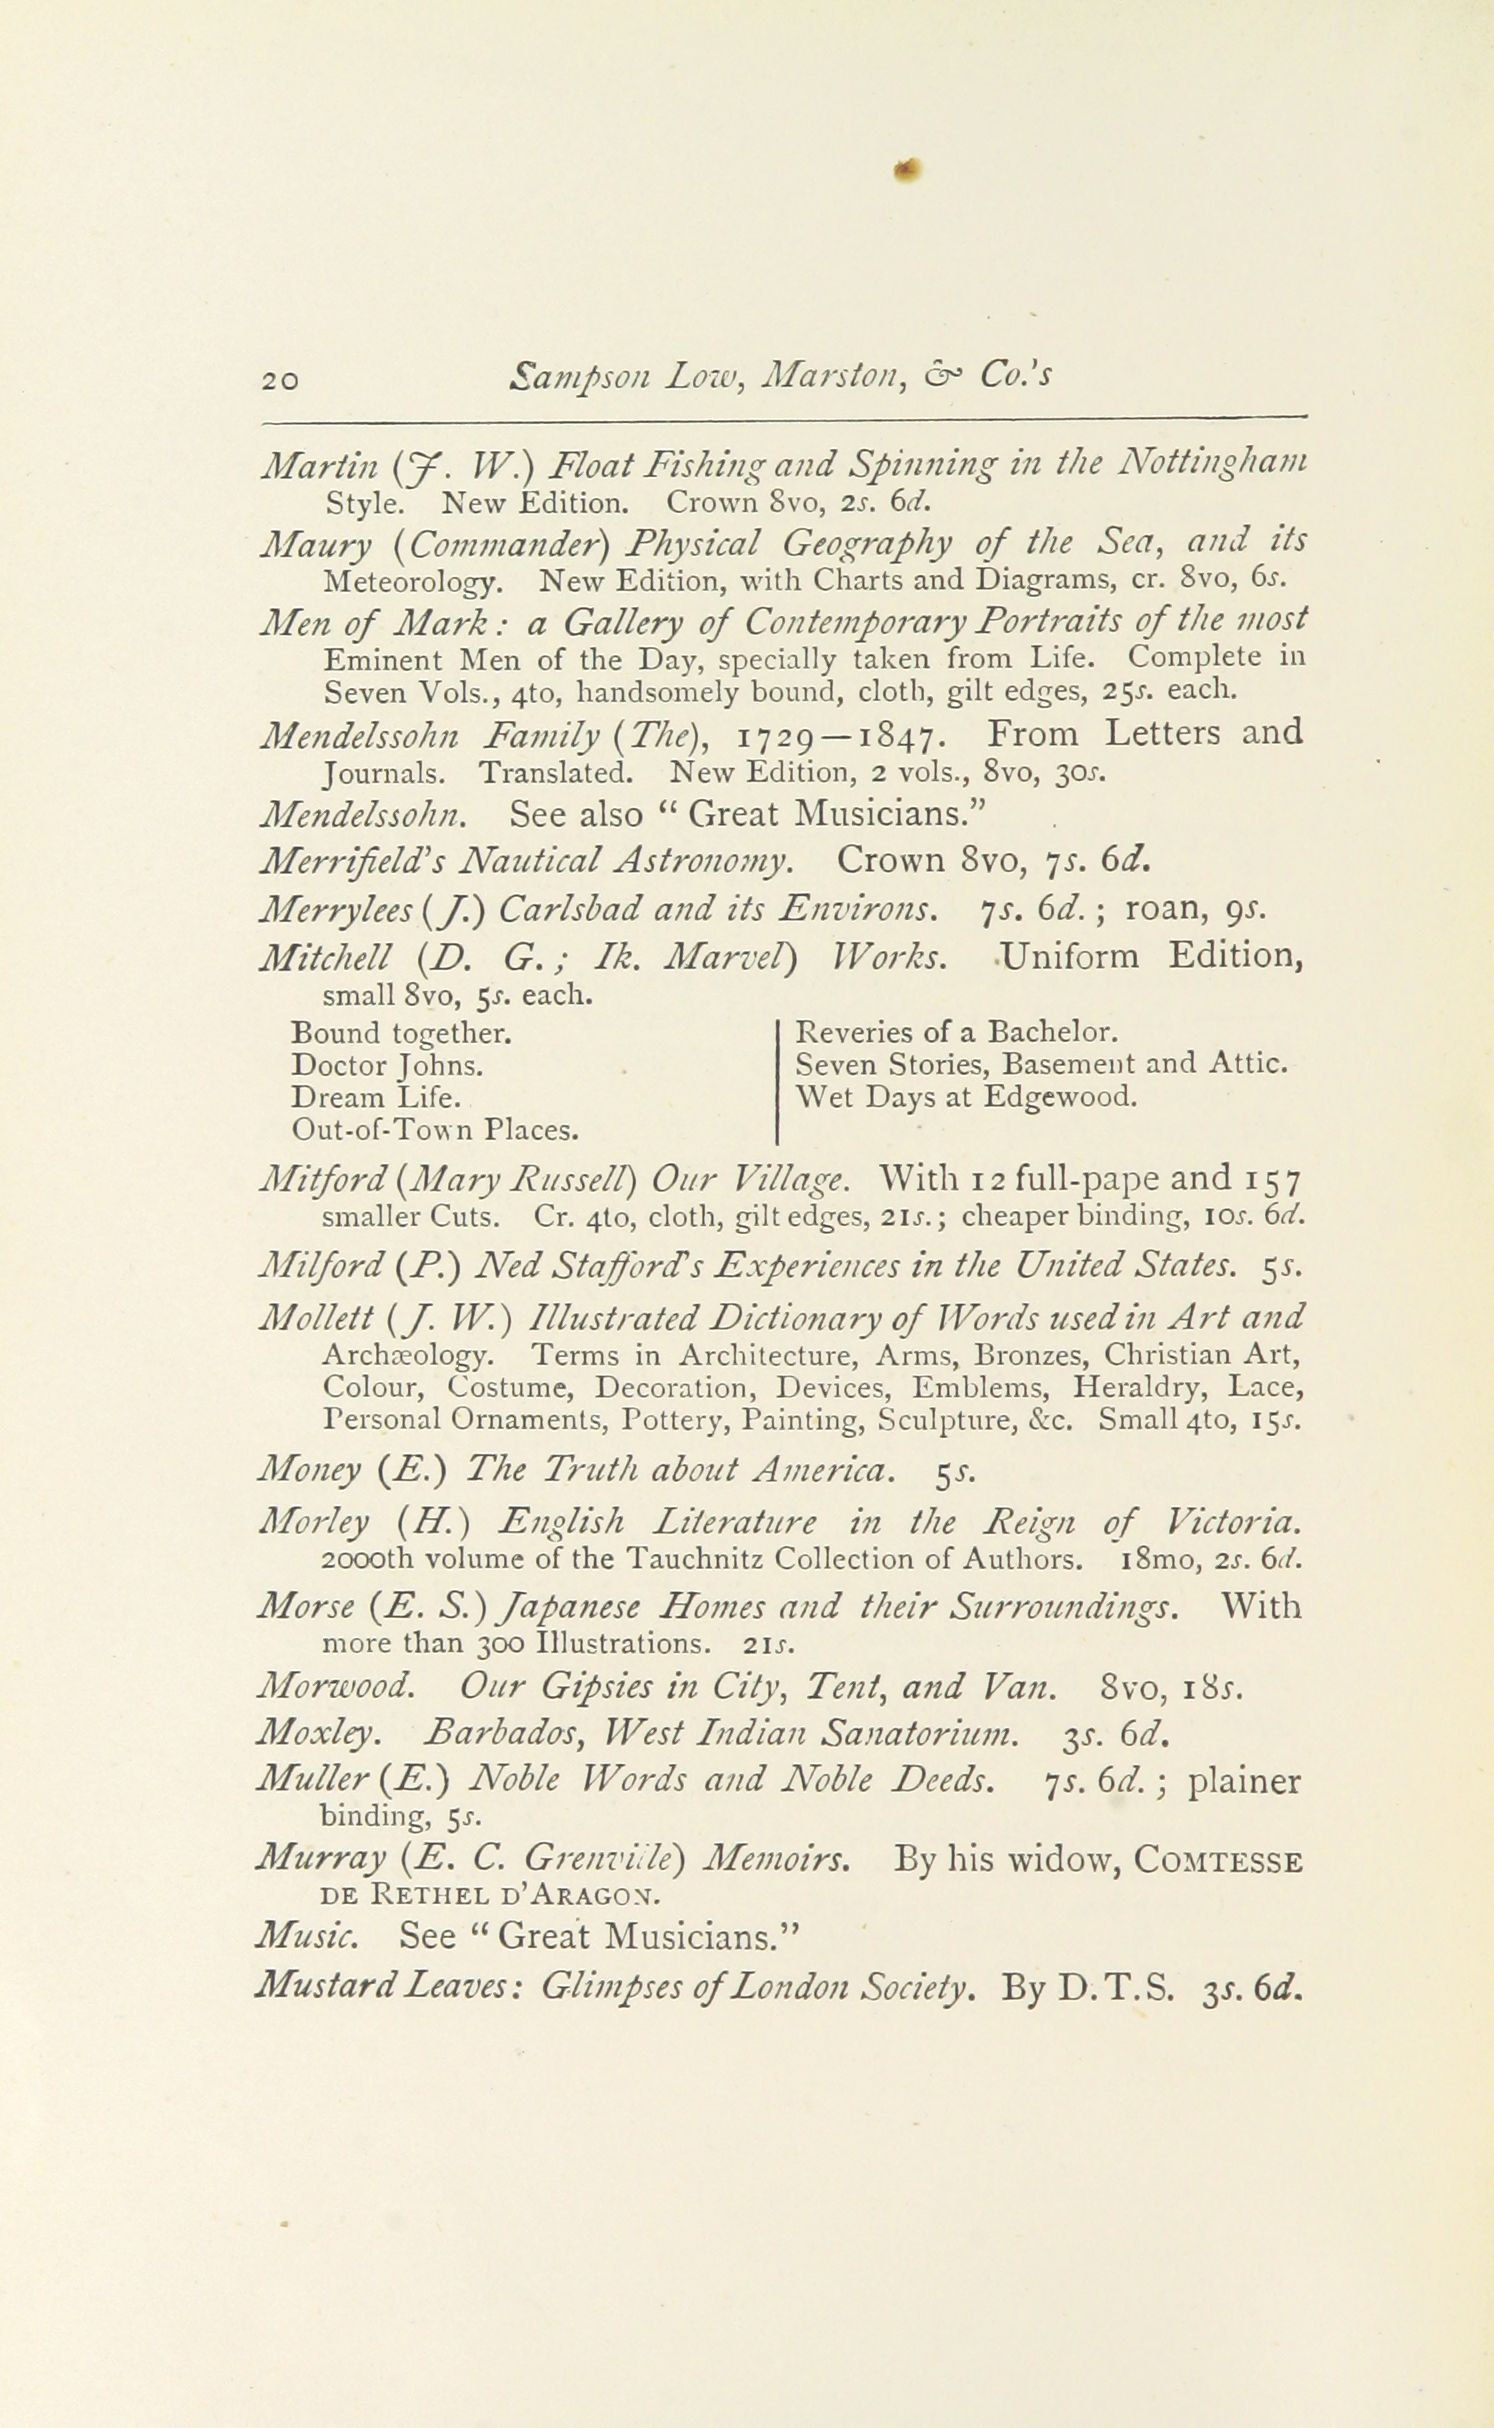 20 Sampson Low, Marston, & Co.'s
Martin (J. W.) Float Fishing and Spinning in the Nottingham
Style. New Edition. Crown 8vo, 2s. 6d.
Maury (Commander) Physical Geography of the Sea, and its
Meteorology. New Edition, with Charts and Diagrams, cr. 8vo, 6s.
Men of Mark: a Gallery of Contemporary Portraits of the most
Eminent Men of the Day, specially taken from Life. Complete in
Seven Vols., 4to, handsomely bound, cloth, gilt edges, 25s. each.
Mendelssohn Family (The), 1729—1847. From Letters and
Journals. Translated. New Edition, 2 vols., 8vo, 30s.
Mendelssohn. See also “Great Musicians.”
Merrifield's Nautical Astronomy. Crown 8vo, 7s. 6d.
Merrylees (J.) Carlsbad and its Environs. 7s. 6d.; roan, 9s.
Mitchell (D. G.; Ik. Marvel) Works. Uniform Edition,
small 8vo, 5s. each.
Bound together.
Doctor Johns.
Dream Life.
Out-of-Town Places.
Reveries of a Bachelor.
Seven Stories, Basement and Attic.
Wet Days at Edgewood.
Mitford (Mary Russell) Our Village. With 12 full-pape and 157
smaller Cuts. Cr. 4to, cloth, gilt edges, 21s.; cheaper binding, 10s. 6d.
Milford (P.) Ned Stafford's Experiences in the United States. 5s.
Mollett (J. W.) Illustrated Dictionary of Words used in Art and
Archæology. Terms in Architecture, Arms, Bronzes, Christian Art,
Colour, Costume, Decoration, Devices, Emblems, Heraldry, Lace,
Personal Ornaments, Pottery, Painting, Sculpture, &c. Small 4to, 15s.
Money (E.) The Truth about America. 5s.
Morley (H.) English Literature in the Reign of Victoria.
2000th volume of the Tauchnitz Collection of Authors. 18mo, 2s. 6d.
Morse (E. S.) Japanese Homes and their Surroundings. With
more than 300 Illustrations. 21s.
Morwood. Our Gipsies in City, Tent, and Van. 8vo, 18s.
Moxley. Barbados, West Indian Sanatorium. 3s. 6d.
Muller (E.) Noble Words and Noble Deeds. 7s. 6d.; plainer
binding, 5s.
Murray (E. C. Grenville) Memoirs. By his widow, COMTESSE
DE RETHEL D'ARAGON.
Music. See “Great Musicians.”
Mustard Leaves: Glimpses of London Society. By D.T.S. 3s. 6d.